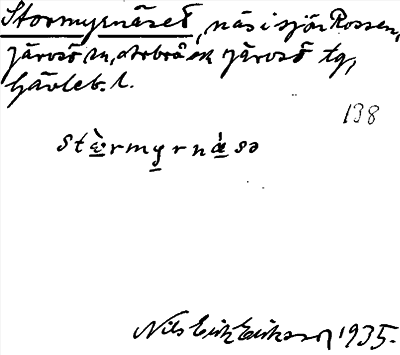 Stormyrnäset, näs i sjön Rossen,
Järvsö sn, Arbrå ek Järvsö tg,
Gävleb. l.
138
stὼ̲rmy̲rnæ̲̀sə
Nils Erik Eriksson 1935.